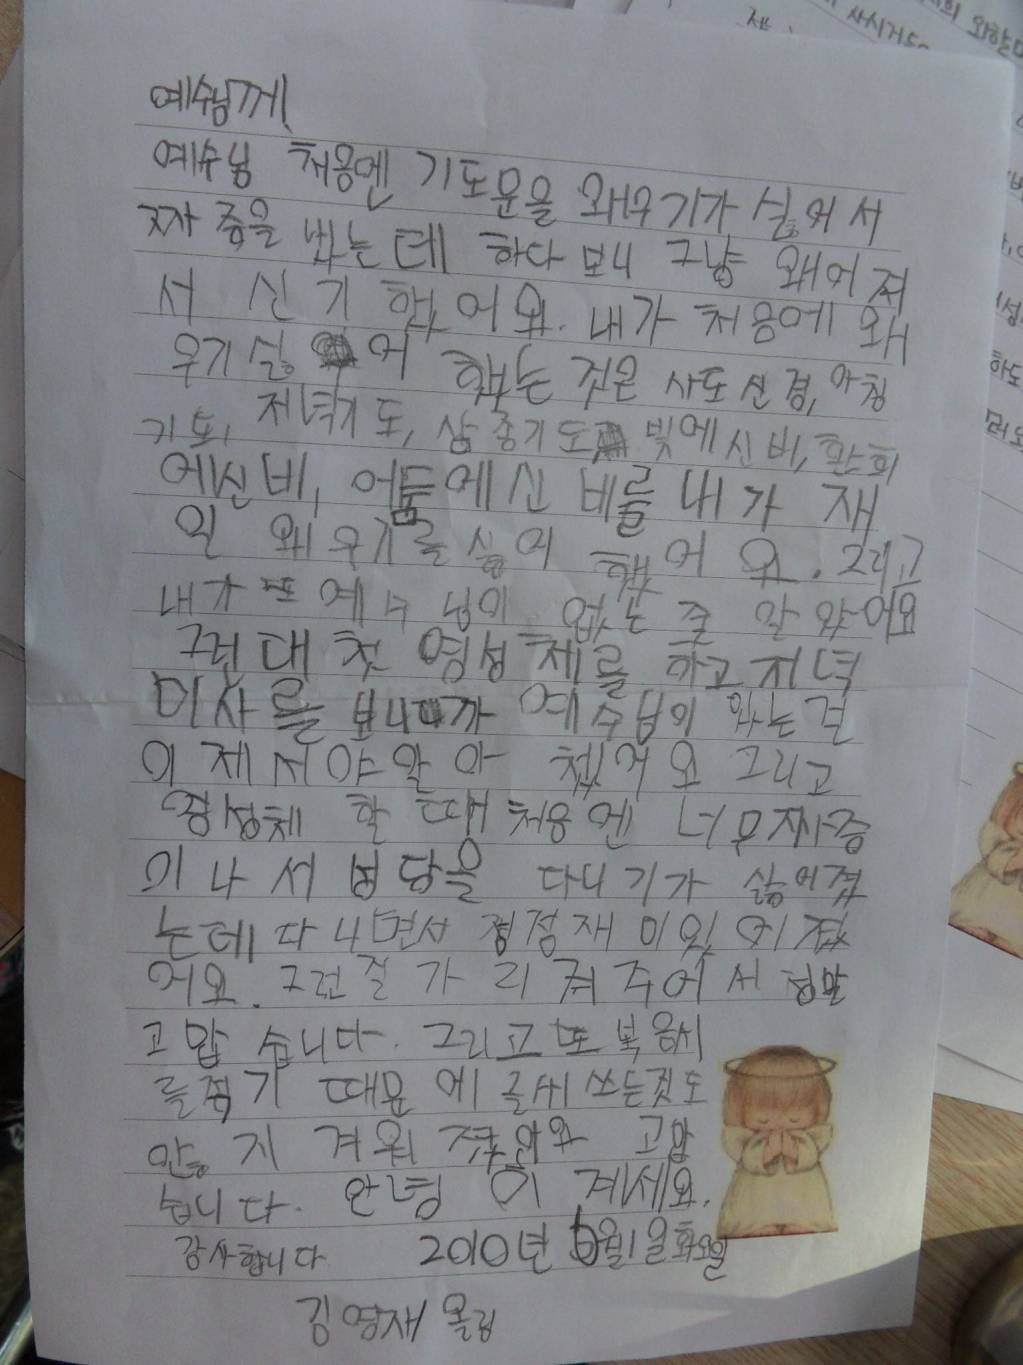 예수님께
예수님 처음엔 기도문을 왜우기가 싫어서
짜증을 냈는데 하다 보니 그냥 왜어져
서 신기했어요. 내가 처음에 왜
우기 싫어 했는 것은 사도신경, 아침
기도, 저녁기도, 삼종기도 빛에신비, 환희
에신비, 어둠에신비를 내가 재
일 왜우기를 싫어 했어요. 그리고
내가 또 예수님이 없는 줄 알았어요
그런대 첫영성체를 하고 저녁
미사를 보니까 예수님이 있는걸
이제서야 알아 챘어요 그리고
영성체 할 때 처음엔 너무 짜증
이나서 성당을 다니기가 싫어졌
는데 다니면서 점점 재미있어졌
어요. 그런걸 가리켜주어서 정말
고맙습니다. 그리고 또 복음시
를적기 때문에 글씨 쓰는것도
안 지겨워 고맙
습니다. 안녕이 계세요.
감사합니다 2010년 6월1일화요일
김영재 올림